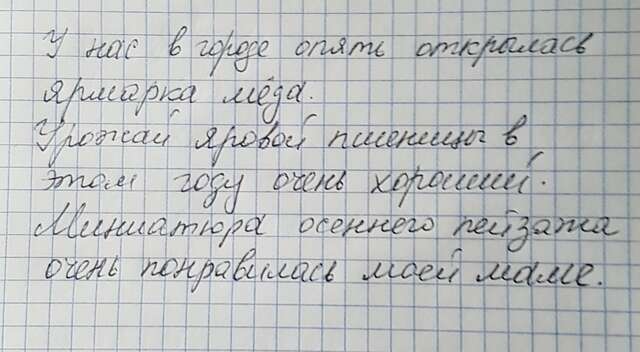 У нас в городе опять открылась
ярмарка мёда.
Урожай яровой пшеницы в
этом году очень хороший.
Миниатюра осеннего пейзажа
очень понравилась моей маме.